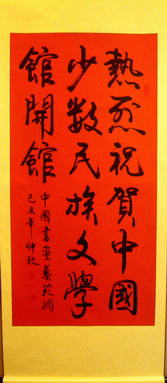 熱烈祝賀中國
少數民族文學
館開館
中國書畫藝苑網
己丑年仲秋